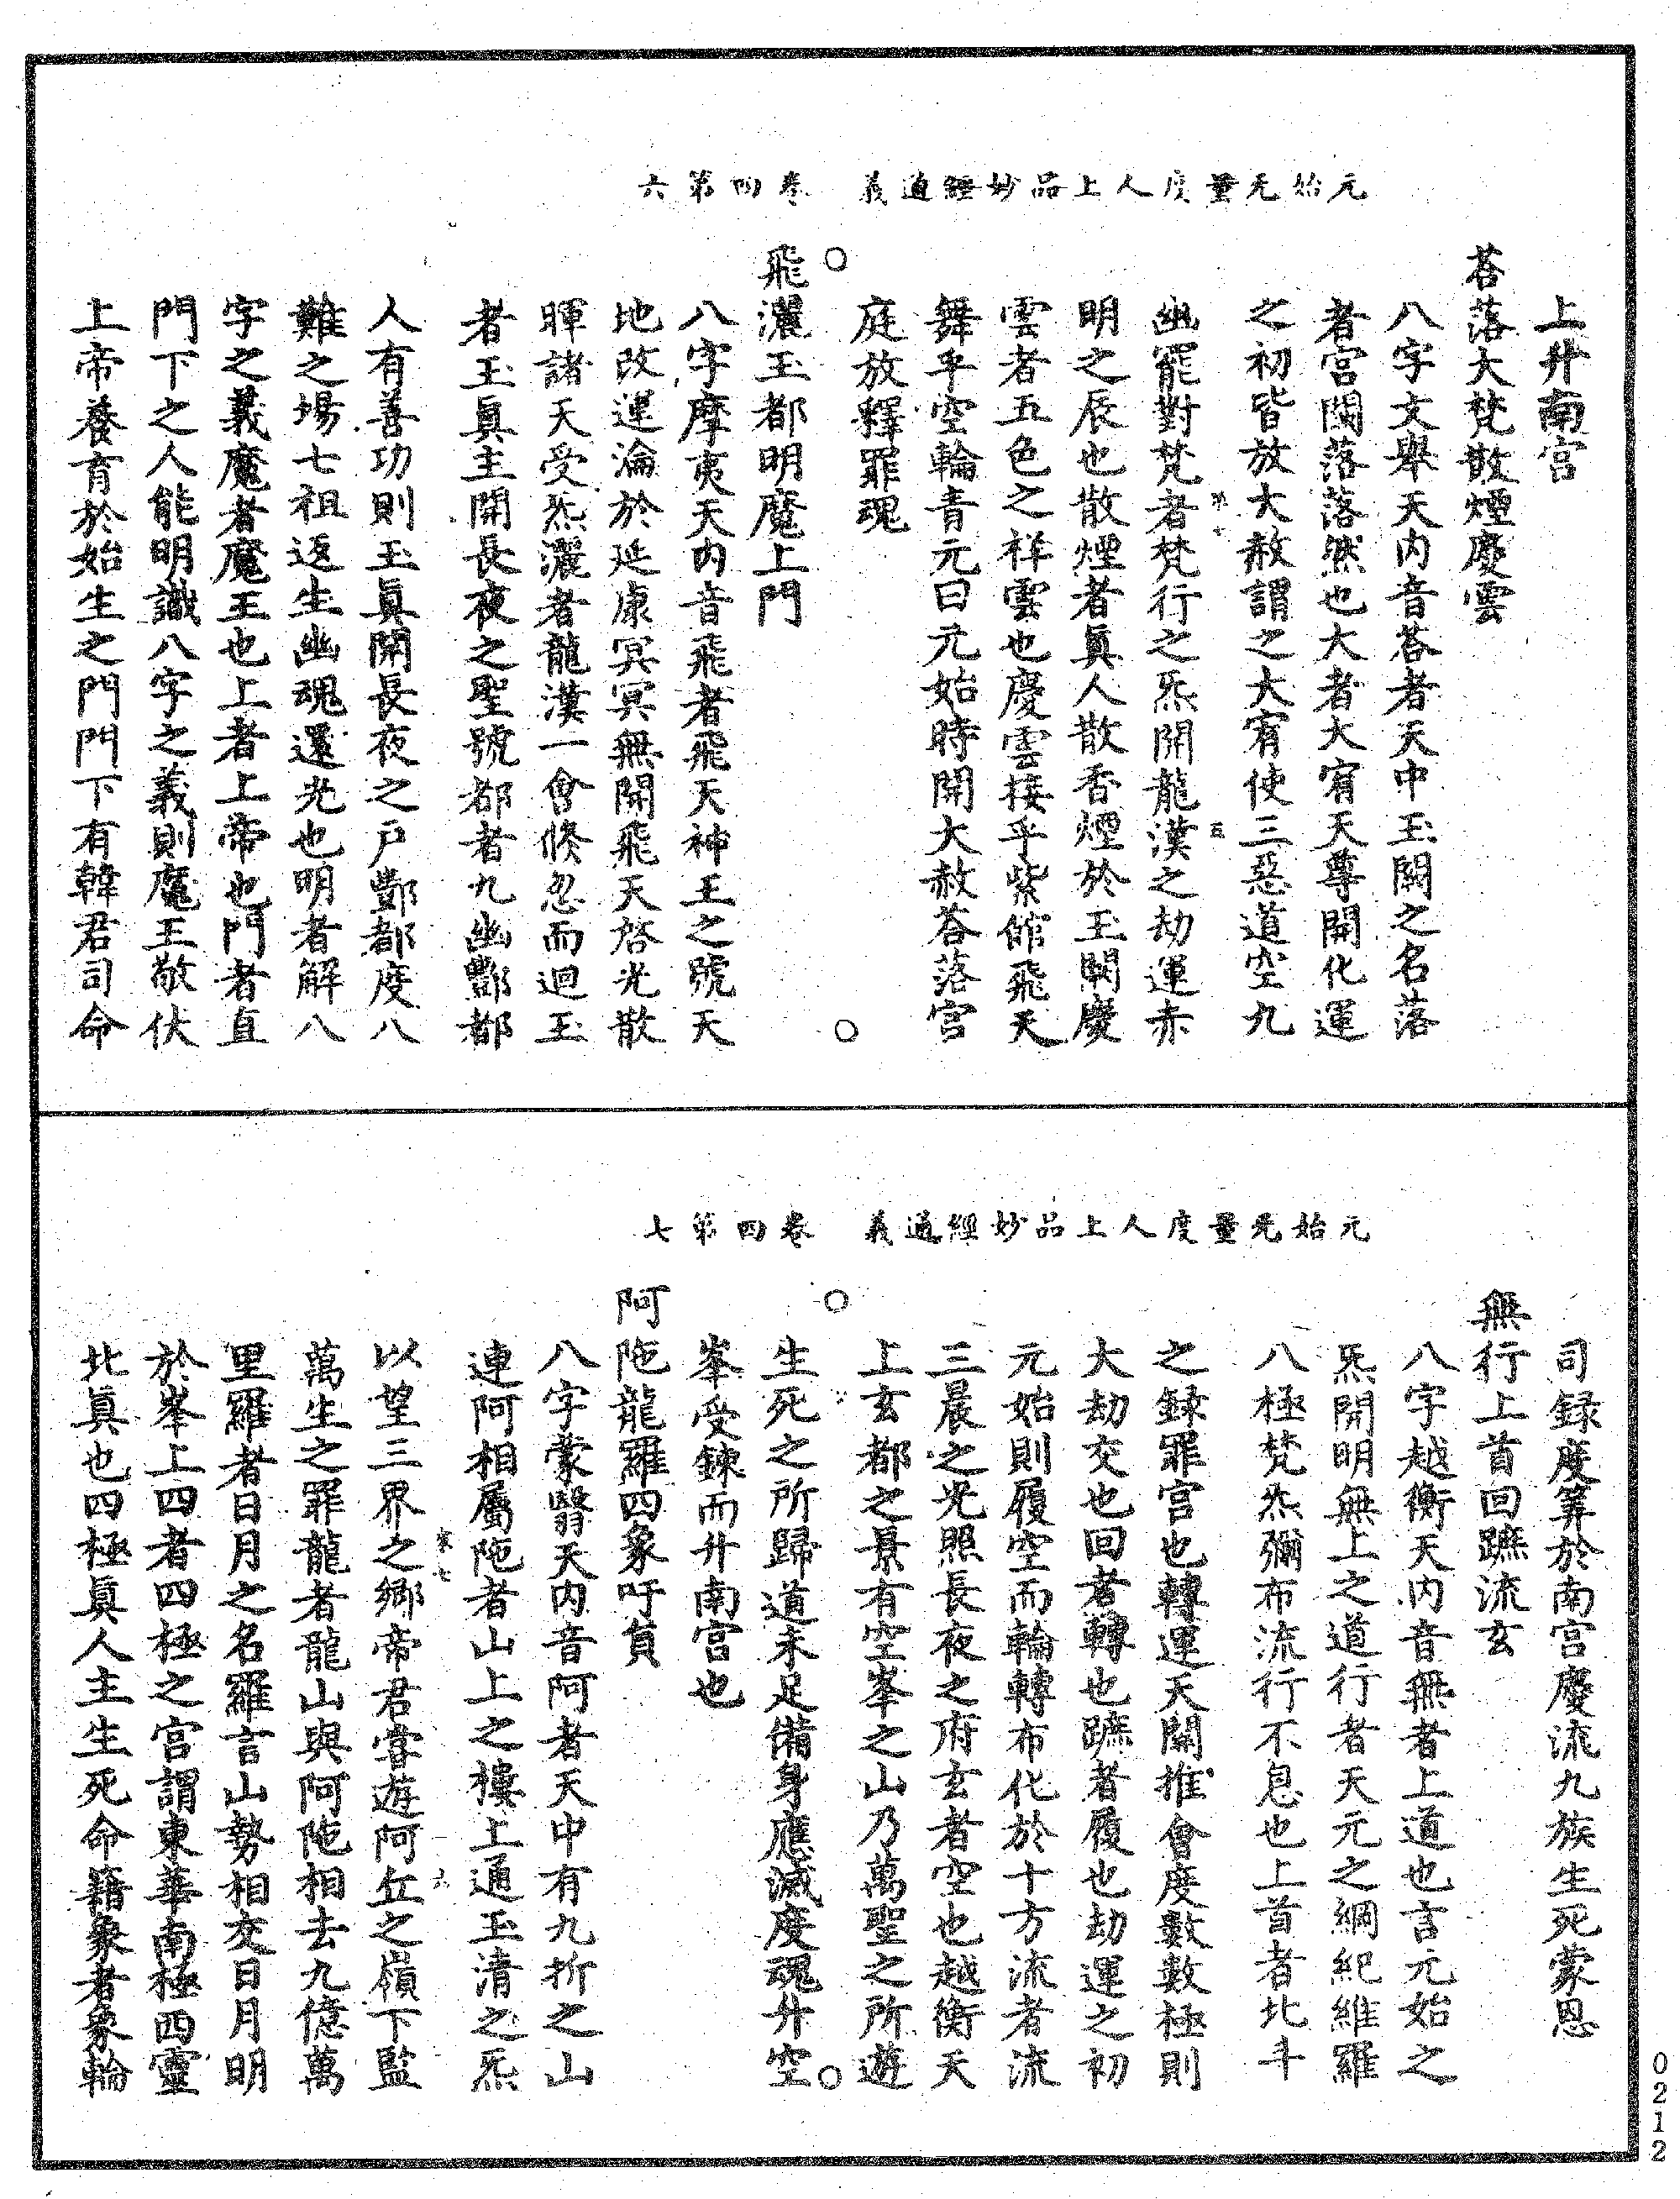 元始无量度人上品妙經通義　卷四第六
上升南宮
荅落大梵散煙慶雲
八字文舉天內音荅者天中玉闕之名落
者宮闕落落然也大者大宥天尊開化運
之初皆放大赦謂之大宥使三惡道空九
幽罷對梵者梵行之炁開龍漢之劫運赤
明之辰也散煙者真人散香煙於玉闕慶
雲者五色之祥雲也慶雲接乎紫館飛天
舞乎空輪青元曰元始時開大赦荅落宮
庭放釋罪魂
飛灑玉都明魔上門
八字摩夷天內音飛者飛天神王之號天
地改運淪於延康冥冥無開飛天啓光散
暉諸天受炁灑者龍漢一會倐忽而迴玉
者玉真主開長夜之聖號都者九幽酆都
人有善功則玉真開長夜之戶酆都度八
難之場七祖返生幽魂還光也明者解八
字之義魔者魔王也上者上帝也門者直
門下之人能明識八字之義則魔王敬伏
上帝養育於始生之門門下有韓君司命
元始无量度人上品妙經通義　卷四第七
司録度筭於南宮慶流九族生死蒙恩
無行上首回蹠流玄
八字越衡天內音無者上道也言元始之
炁開明無上之道行者天元之綱紀維羅
八極梵炁彌布流行不息也上首者北斗
之録罪宮也轉運天關推會度數數極則
大劫交也回者轉也蹠者履也劫運之初
元始則履空而輪轉布化於十方流者流
三晨之光照長夜之府玄者空也越衡天
上玄都之景有空峯之山乃萬聖之所遊
生死之所歸道未足備身應滅度魂升空
峯受鍊而升南宮也
阿陁龍羅四象吁員
八字蒙翳天內音阿者天中有九折之山
連阿相屬陁者山上之樓上通玉清之炁
以望三界之鄉帝君嘗遊阿丘之嶺下監
萬生之罪龍者龍山與阿陁相去九億萬
里羅者日月之名羅言山勢相交日月明
於峯上四者四極之宮謂東華南極西靈
北真也四極真人主生死命籍象者象輪
0212